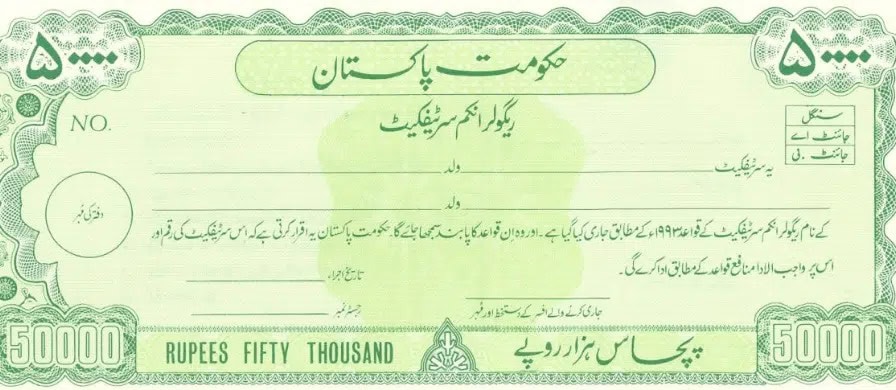 ۵۰۰۰۰ ۵۰۰۰۰
حکومت پاکستان
ریگولر انکم سرٹیفکیٹ
NO.
سنگل
جائنٹ اے
جائنٹ بی
یہ سرٹیفکیٹ ولد
ولد
کے نام ریگولر انکم سرٹیفکیٹ کے قواعد ۱۹۹۳ء کے مطابق جاری کیا گیا ہے۔ اور وہ ان قواعد کا پابند سمجھا جائے گا۔ حکومت پاکستان یہ اقرار کرتی ہے کہ اس سرٹیفکیٹ کی رقم اور
اس پر واجب الادا منافع قواعد کے مطابق ادا کرے گی۔
دفتر کی مُہر
تاریخ اجراء
جاری کرنے والے افسر کے دستخط اور مُہر
رجسٹر نمبر
50000 RUPEES FIFTY THOUSAND پچاس ہزار روپے 50000